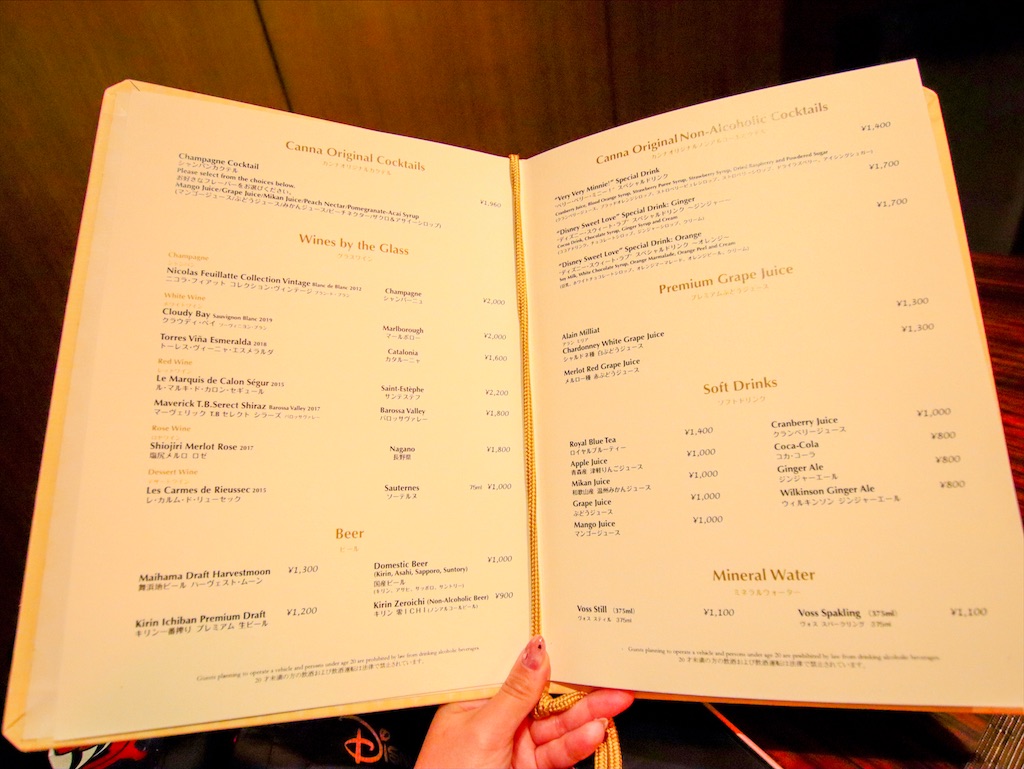 Canna Original Cocktails
カンナオリジナルカクテル
Champagne Cocktail ¥1,960
シャンパンカクテル
Please select from the choices below.
お好きなフレーバーをお選びください。
Mango Juice/Grape Juice/Mikan Juice/Peach Nectar/Pomegranate-Acai Syrup
(マンゴージュース/ぶどうジュース/みかんジュース/ピーチネクター/ザクロ&アサイーシロップ)
Wines by the Glass
グラスワイン
Champagne
シャンパン
Nicolas Feuillatte Collection Vintage Blanc de Blanc 2012 Champagne ¥2,000
ニコラ・フィアット コレクション・ヴィンテージ ブラン・ド・ブラン シャンパーニュ
White Wine
ホワイトワイン
Cloudy Bay Sauvignon Blanc 2019 Marlborough ¥2,000
クラウディ・ベイ ソーヴィニヨン・ブラン マールボロー
Torres Viña Esmeralda 2018 Catalonia ¥1,600
トーレス・ヴィーニャ・エスメラルダ カタルーニャ
Red Wine
レッドワイン
Le Marquis de Calon Ségur 2015 Saint-Estèphe ¥2,200
ル・マルキ・ド・カロン・セギュール サンテステフ
Maverick T.B.Serect Shiraz Barossa Valley 2017 Barossa Valley ¥1,800
マーヴェリック T.B セレクト シラーズ バロッサヴァレー バロッサヴァレー
Rose Wine
ロゼワイン
Shiojiri Merlot Rose 2017 Nagano ¥1,800
塩尻メルロ ロゼ 長野県
Dessert Wine
デザートワイン
Les Carmes de Rieussec 2015 Sauternes 75ml ¥1,000
レ・カルム・ド・リューセック ソーテルヌ
Beer
ビール
Maihama Draft Harvestmoon ¥1,300
舞浜地ビール ハーヴェスト・ムーン
Kirin Ichiban Premium Draft ¥1,200
キリン一番搾り プレミアム 生ビール
Domestic Beer ¥1,000
(Kirin, Asahi, Sapporo, Suntory)
国産ビール
(キリン、アサヒ、サッポロ、サントリー)
Kirin Zeroichi (Non-Alcoholic Beer) ¥900
キリン 零ICHI (ノンアルコールビール)
Guests planning to operate a vehicle and persons under age 20 are prohibited by law from drinking alcoholic beverages.
20才未満の方の飲酒および飲酒運転は法律で禁止されています。
Canna Original Non-Alcoholic Cocktails
カンナオリジナルノンアルコールカクテル
"Very Very Minnie!" Special Drink ¥1,400
"ベリー・ベリー・ミニー!" スペシャルドリンク
Cranberry Juice, Blood Orange Syrup, Strawberry Puree Syrup, Strawberry Syrup, Dried Raspberry and Powdered Sugar
"Disney Sweet Love" Special Drink: Ginger ¥1,700
"ディズニー・スウィート・ラブ" スペシャルドリンク ～ジンジャー～
Cocoa Drink, Chocolate Syrup, Ginger Syrup and Cream
(ココアドリンク、チョコレートシロップ、ジンジャーシロップ、クリーム)
"Disney Sweet Love" Special Drink: Orange ¥1,700
"ディズニー・スウィート・ラブ" スペシャルドリンク ～オレンジ～
Soy Milk, White Chocolate Syrup, Orange Marmalade, Orange Peel and Cream
(豆乳、ホワイトチョコレートシロップ、オレンジマーマレード、オレンジピール、クリーム)
Premium Grape Juice
プレミアムぶどうジュース
Alain Milliat
アラン ミリア
Chardonney White Grape Juice ¥1,300
シャルドネ種 白ぶどうジュース
Merlot Red Grape Juice ¥1,300
メルロー種 赤ぶどうジュース
Soft Drinks
ソフトドリンク
Royal Blue Tea ¥1,400
ロイヤルブルーティー
Apple Juice ¥1,000
青森産 津軽りんごジュース
Mikan Juice ¥1,000
和歌山産 温州みかんジュース
Grape Juice ¥1,000
ぶどうジュース
Mango Juice ¥1,000
マンゴージュース
Cranberry Juice ¥1,000
クランベリージュース
Coca-Cola ¥800
コカ・コーラ
Ginger Ale ¥800
ジンジャーエール
Wilkinson Ginger Ale ¥800
ウィルキンソン ジンジャーエール
Mineral Water
ミネラルウォーター
Voss Still (375ml) ¥1,100
ヴォス スティル 375ml
Voss Spakling (375ml) ¥1,100
ヴォス スパークリング 375ml
Guests planning to operate a vehicle and persons under age 20 are prohibited by law from drinking alcoholic beverages.
20才未満の方の飲酒および飲酒運転は法律で禁止されています。